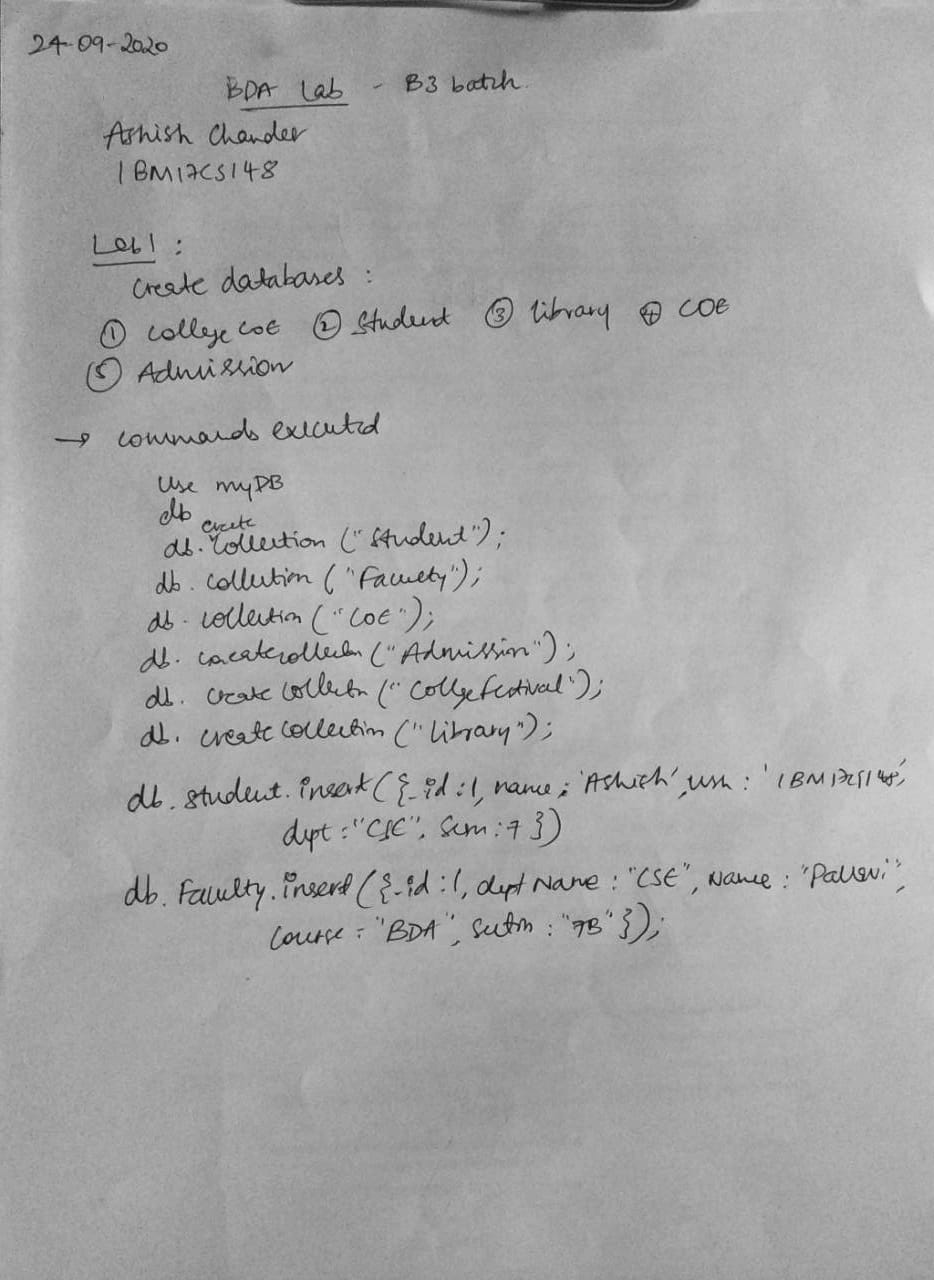 24-09-2020
BDA Lab - B3 batch.
Ashish Chander
1BM17CS148
Lab1 :
Create databases :
① College COE ② Student ③ library ④ COE
⑤ Admission
→ commands executed
Use myDB
db
create
db. Collection ("Student");
db. collection ("Faculty");
db. collection ("COE");
db. createcollection ("Admission");
db. create Collectn ("Collge festival");
db. create Collection ("library");
db. student. insert ({_id :1, name : 'Ashish', usn : '1BM17CS148',
dept : "CSE", Sem : 7 })
db. Faculty. insert ({_id :1, dept Name : "CSE", Name : "Pallavi",
Course : "BDA", Sectn : "7B" });